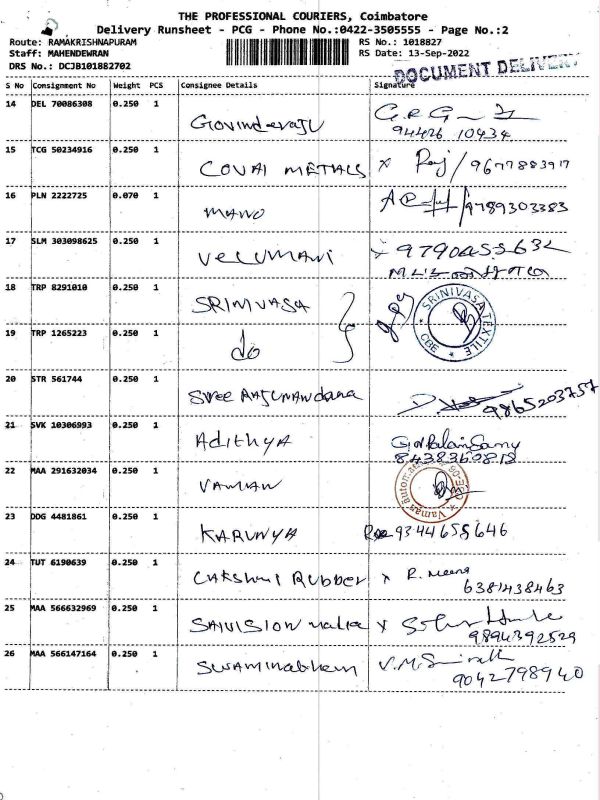 THE PROFESSIONAL COURIERS, Coimbatore
Delivery Runsheet - PCG - Phone No.:0422-3505555 - Page No.:2
Route: RAMAKRISHNAPURAM RS No.: 1018827
Staff: MAHENDEWRAN RS Date: 13-Sep-2022
DRS No.: DCJB101882702
DOCUMENT DELIVERY
S No Consignment No Weight PCS Consignee Details Signature
14 DEL 70086308 0.250 1 Govinderaju
94426 10434
15 TCG 50234916 0.250 1 COVAI METALS x Raj/9677883917
16 PLN 2222725 0.070 1 MANO 9789303383
17 SLM 303098625 0.250 1 VELUMANI
18 TRP 8291010 0.250 1 SRINIVASA
SRINIVASA TEXTILE
CBE
19 TRP 1265223 0.250 1 do
20 STR 561744 0.250 1 Sree 9865203757
21 SVK 10306993 0.250 1 Adithya Gopalan Samy
8438360818
22 MAA 291632034 0.250 1 VAMAN
23 DDG 4481861 0.250 1 KARUNYA 9344655646
24 TUT 6190639 0.250 1 Lakshmi Rubber x R. Meena
6381438463
25 MAA 566632969 0.250 1 SAIVISION x
9894392529
26 MAA 566147164 0.250 1 Swaminathan
9042798940